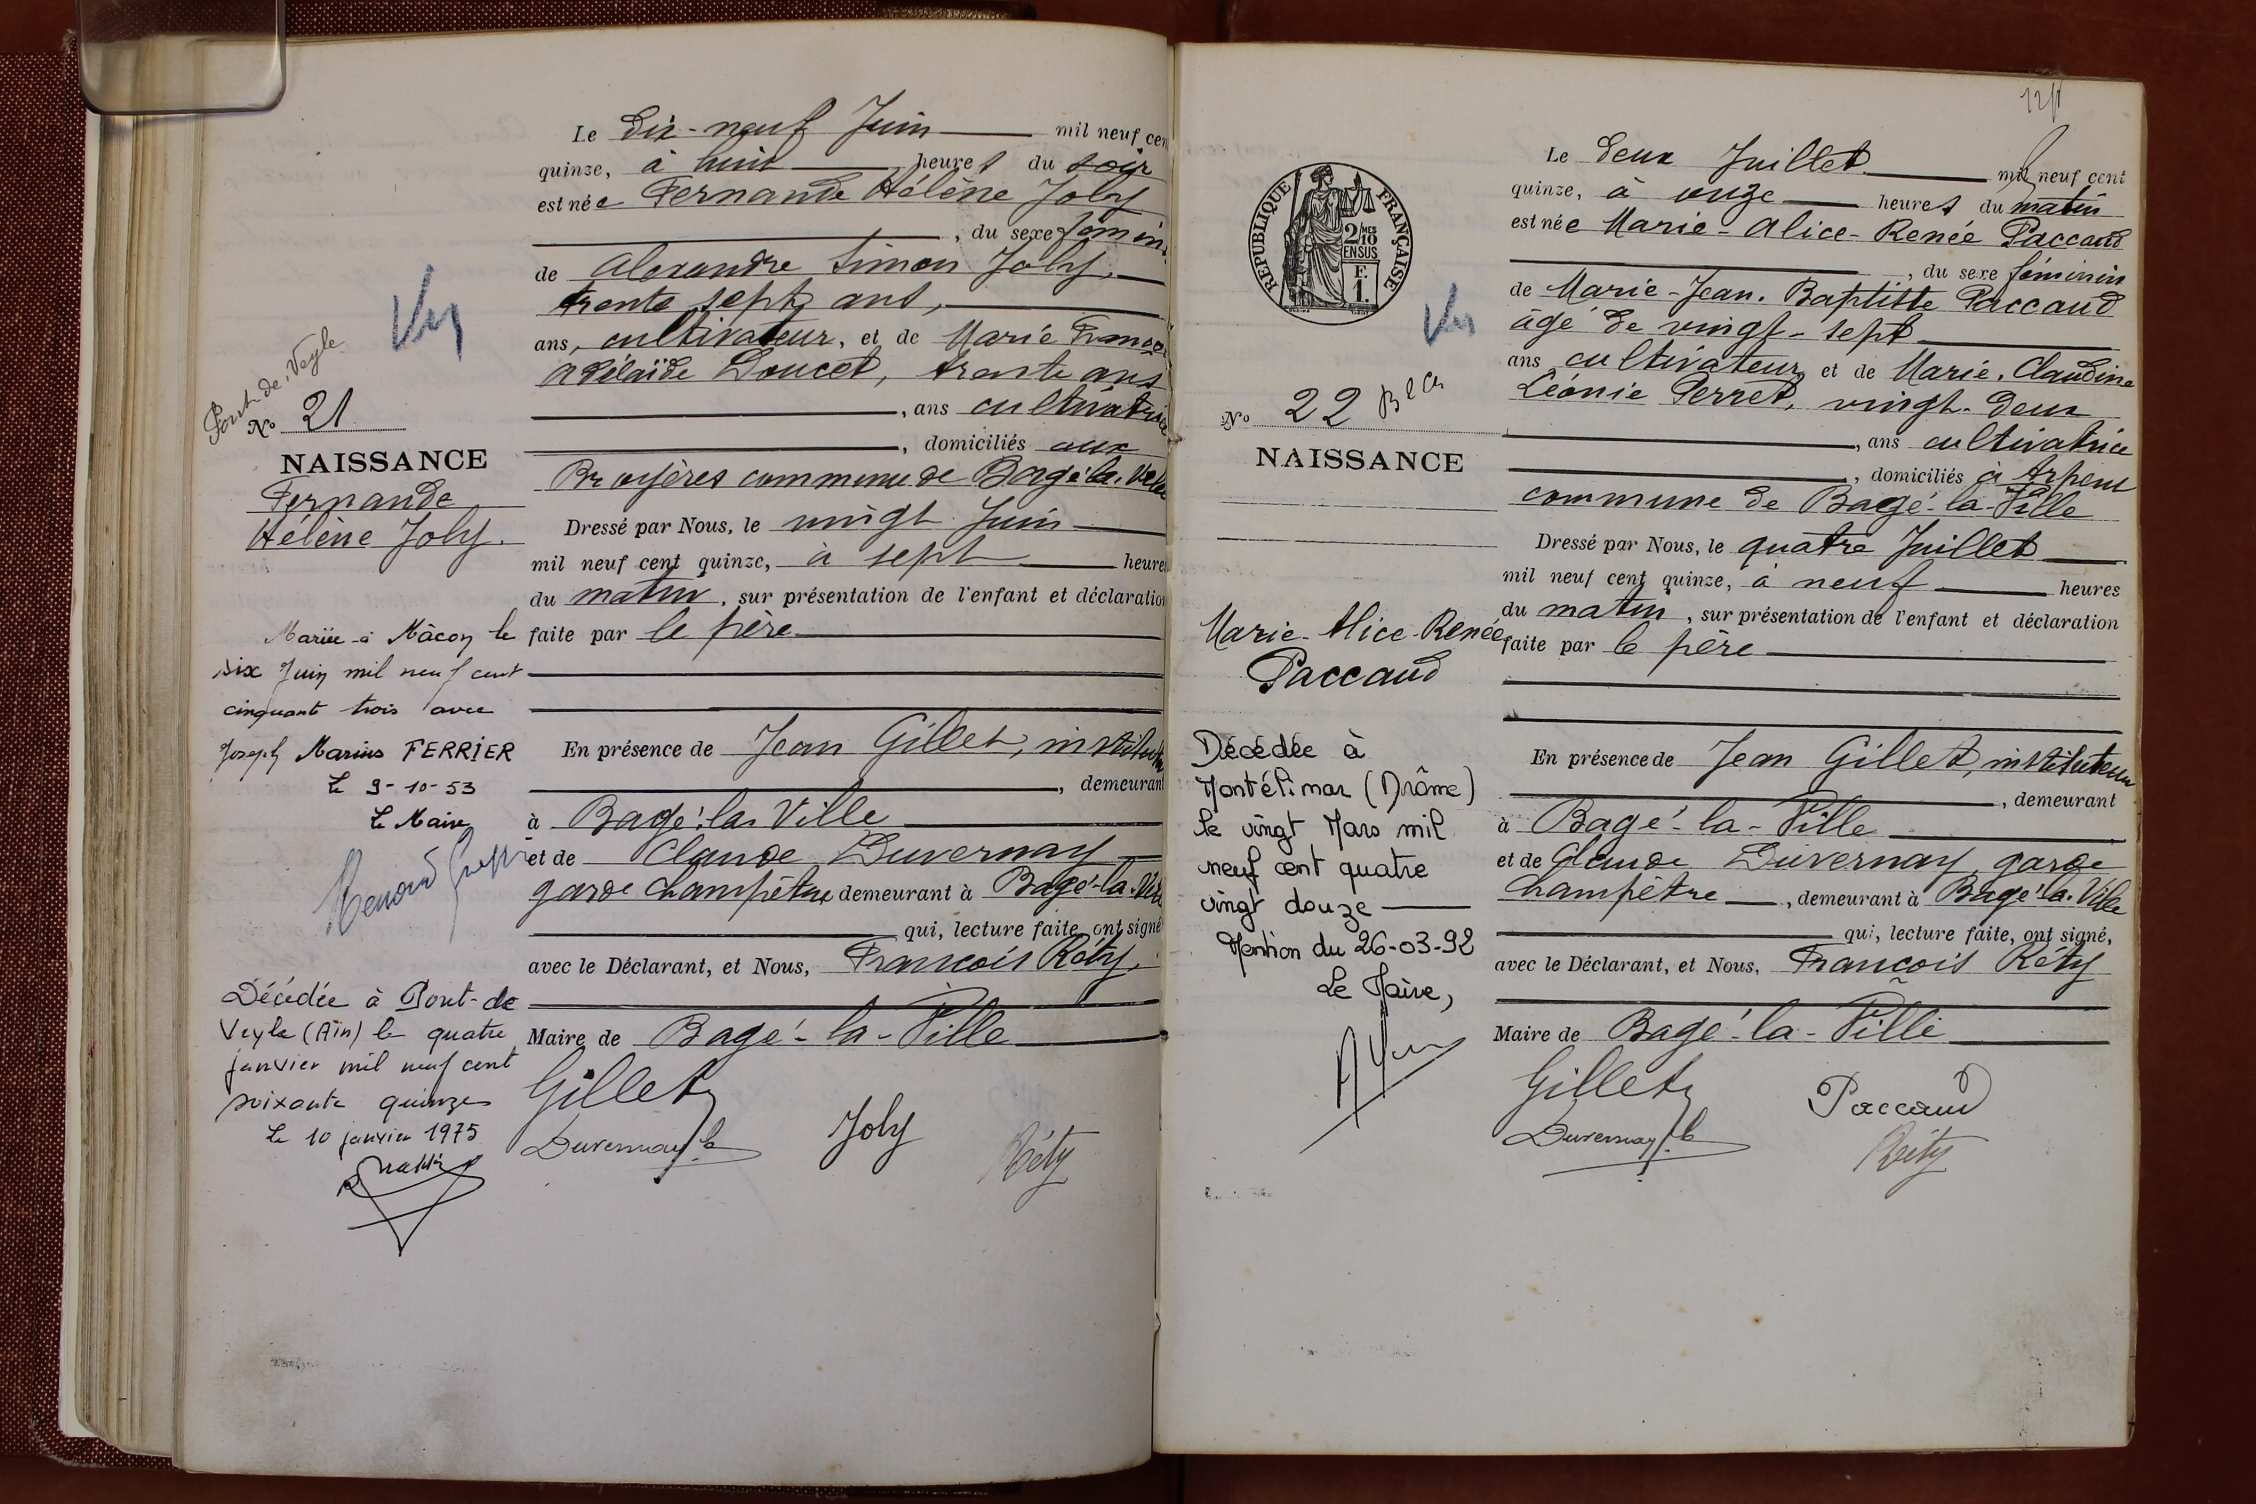 Le Dix-neuf Juin mil neuf cen
quinze, à huit heures du soir
est née Fernande Hélène Joly
, du sexe fémini
de Alexandre Simon Joly,
trente sept ans,
ans, cultivateur, et de Marie
Adélaïde Doucet, trente ans
, ans cultivatrice
, domiciliés aux
Bruyères commune de Bagé-la-Ville
Dressé par Nous, le vingt Juin
mil neuf cent quinze, à sept heures
du matin, sur présentation de l'enfant et déclaration
faite par le père
En présence de Jean Gillet, instituteur
, demeurant
à Bagé-la-Ville
et de Claude Duvernay
garde champêtre demeurant à Bagé-la-Ville
qui, lecture faite, ont signé
avec le Déclarant, et Nous, François Réty,
Maire de Bagé-la-Ville
Gillet
Duvernay
Joly
Réty
Pont-de-Veyle
No 21
NAISSANCE
Fernande
Hélène Joly.
Mariée à Mâcon le
six Juin mil neuf cent
cinquante trois avec
Joseph Marius FERRIER
Le 9-10-53
Le Maire
Décédée à Pont-de
Veyle (Ain) le quatre
janvier mil neuf cent
soixante quinze
Le 10 janvier 1975
REPUBLIQUE FRANÇAISE
2/10 MES
EN SUS
F.
1.
No 22
NAISSANCE
Marie-Alice-Renée
Paccaud
Décédée à
Montélimar (Drôme)
le vingt Mars mil
neuf cent quatre
vingt douze
Mention du 26-03-92
Le Maire,
Le deux Juillet mil neuf cent
quinze, à onze heures du matin
est née Marie-Alice-Renée Paccaud
, du sexe féminin
de Marie-Jean-Baptiste Paccaud
âgé de vingt-sept
ans cultivateur, et de Marie-Claudine
Léonie Perret, vingt-deux
, ans cultivatrice
, domiciliés à
commune de Bagé-la-Ville
Dressé par Nous, le quatre Juillet
mil neuf cent quinze, à neuf heures
du matin, sur présentation de l'enfant et déclaration
faite par le père
En présence de Jean Gillet, instituteur
, demeurant
à Bagé-la-Ville
et de Claude Duvernay, garde
champêtre, demeurant à Bagé-la-Ville
qui, lecture faite, ont signé,
avec le Déclarant, et Nous, François Réty
Maire de Bagé-la-Ville
Gillet
Paccaud
Duvernay
Réty